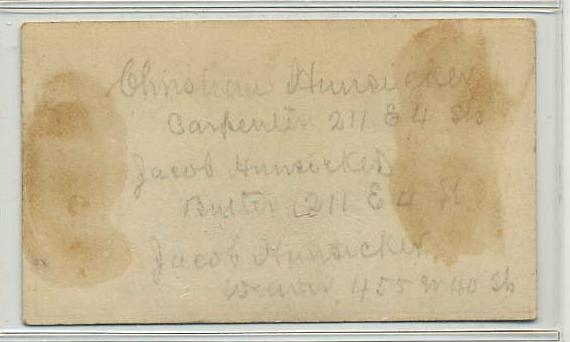 Christian Hunsicker
Carpenter 211 E 4 St
Jacob Hunsicker
211 E 4 St
Jacob Hunsicker
455 W St